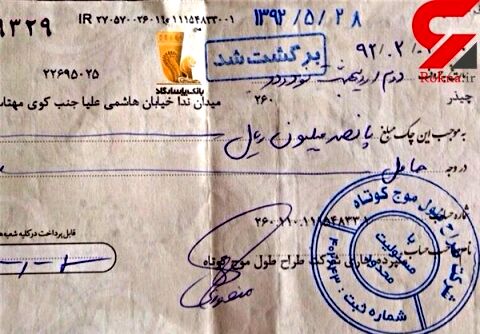 ۹۳۲۹
IR ۲۷۰۵۷۰۰۲۶۰۱۱۰۱۱۱۵۴۸۳۳۰۰۱
۱۳۹۲/۵/۲۸
برگشت شد
۹۲/۰۲/۰
Rokna.ir
بانک پاسارگاد
۲۲۶۹۵۰۲۵
دوم اردیبهشت نود و دو
چیذر
۲۶۰
میدان ندا خیابان هاشمی علیا جنب کوی مهتاب
به موجب این چک مبلغ پانصد میلیون ریال
در وجه حامل
شماره حساب ۲۶۰.۱۱۰.۱۱۱۵۴۸۳۳.۱
قابل پرداخت در کلیه شعبه
صاحب حساب سپرده جاری شرکت طراح طول موج کوتاه
شرکت طراح طول موج کوتاه
با مسئولیت محدود
شماره ثبت: